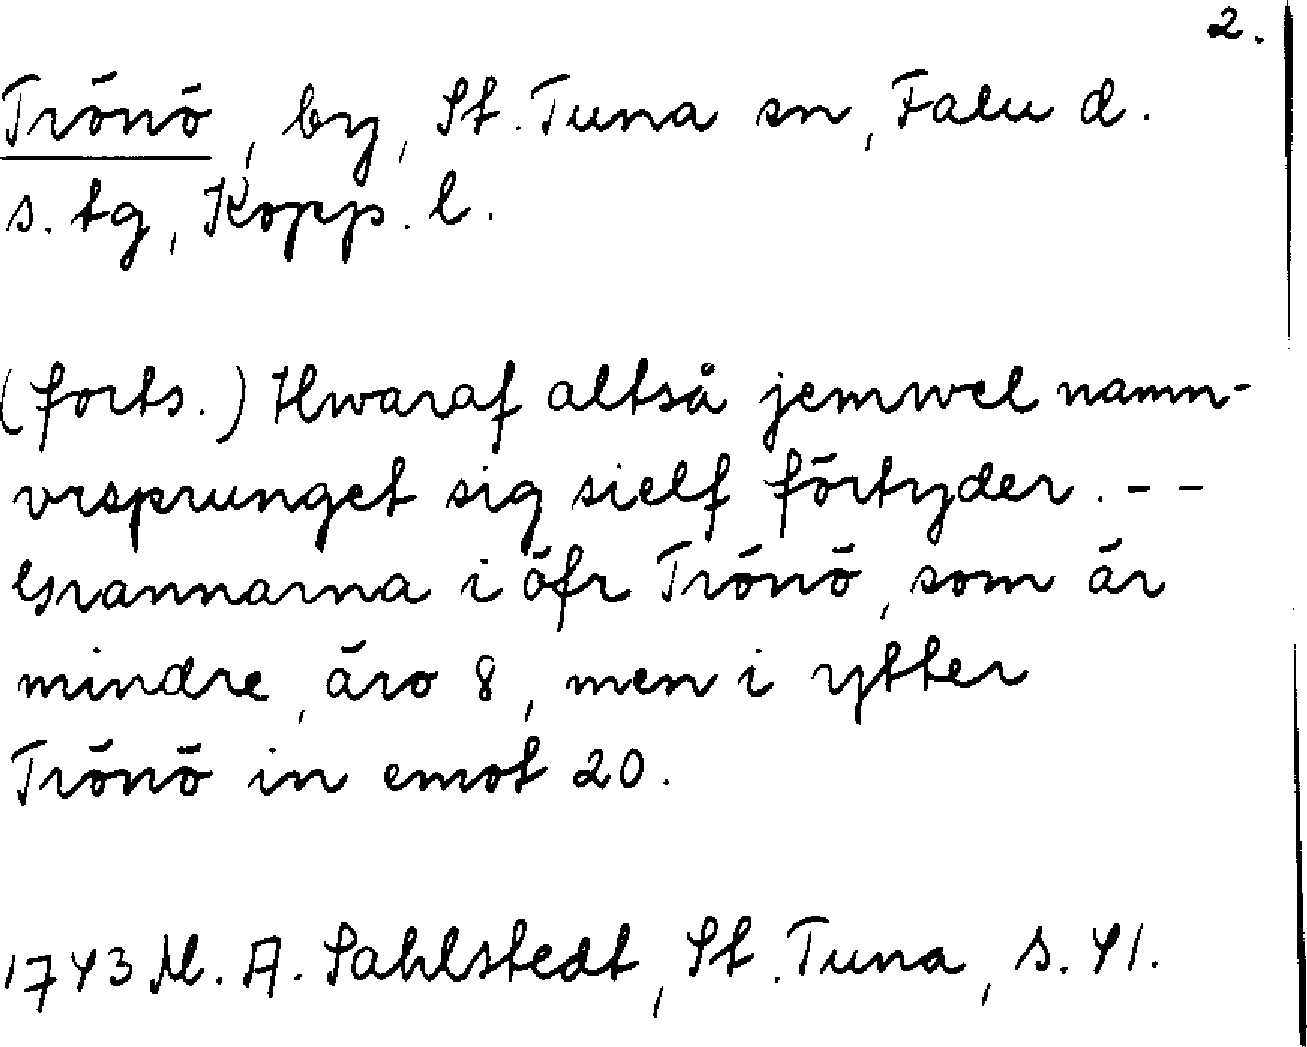 2.
Trönö, by, St. Tuna sn, Falu d.
s. tg, Kopp. l.
(forts.) Hwaraf altså jemwel namn-
vrsprunget sig sielf förtyder. - -
Grannarna i öfr Trönö, som är
mindre, äro 8, men i ytter
Trönö in emot 20.
1743 M. A. Sahlstedt, St. Tuna, s. 41.